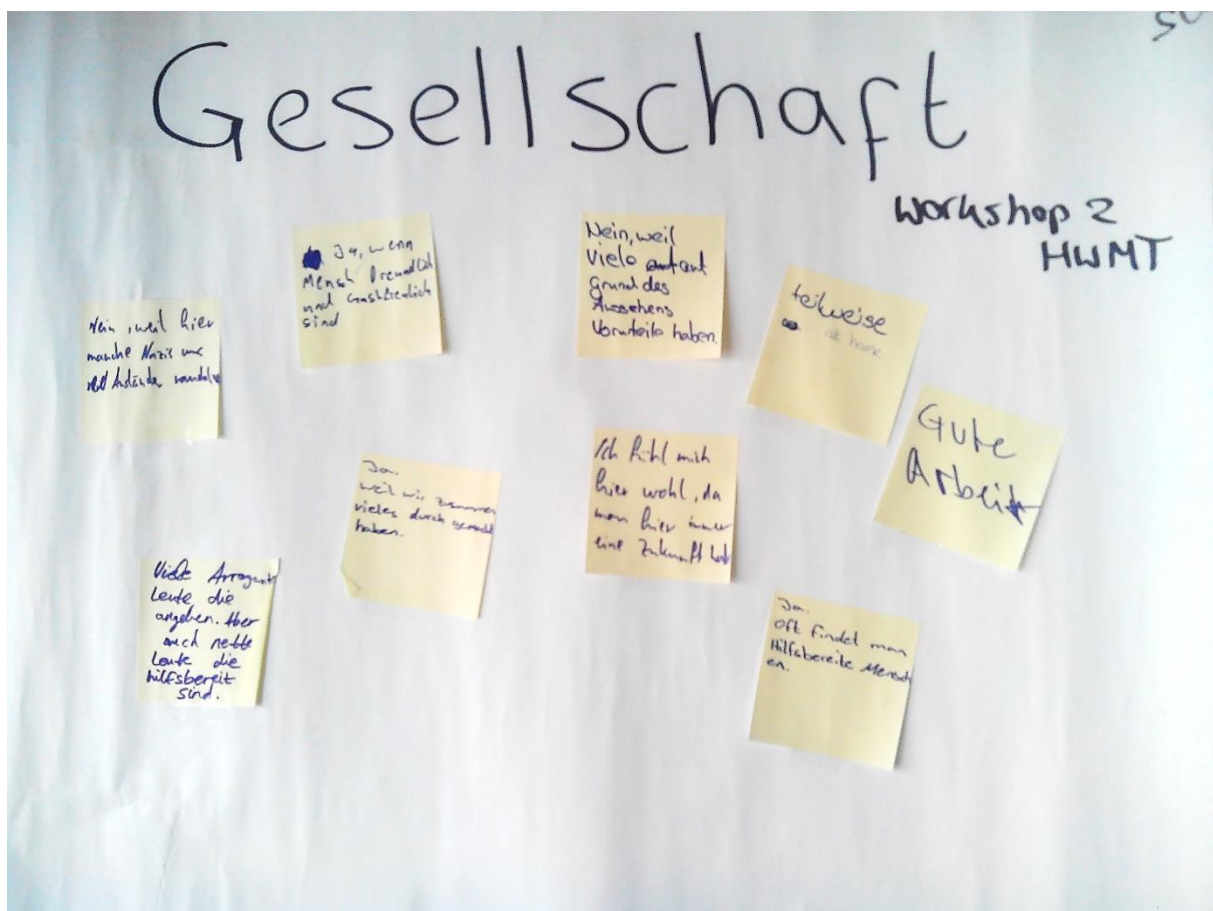 Gesellschaft
Workshop 2
HWMT
Nein, weil hier
manche Nazis
Ja, wenn
Mensch freundlich
und
sind
Nein, weil
viele auf
grund des
Aussehens
Vorurteile haben.
teilweise
Gute
Arbeit
Ja.
weil wir zusammen
vieles durch gemacht
haben.
Ich fühl mich
hier wohl, da
man hier immer
eine Zukunft hat
Viele Arrogante
Leute die
angeben. Aber
auch nette
Leute die
hilfsbereit
sind.
Ja.
oft findet man
Hilfsbereite Mensch
en.